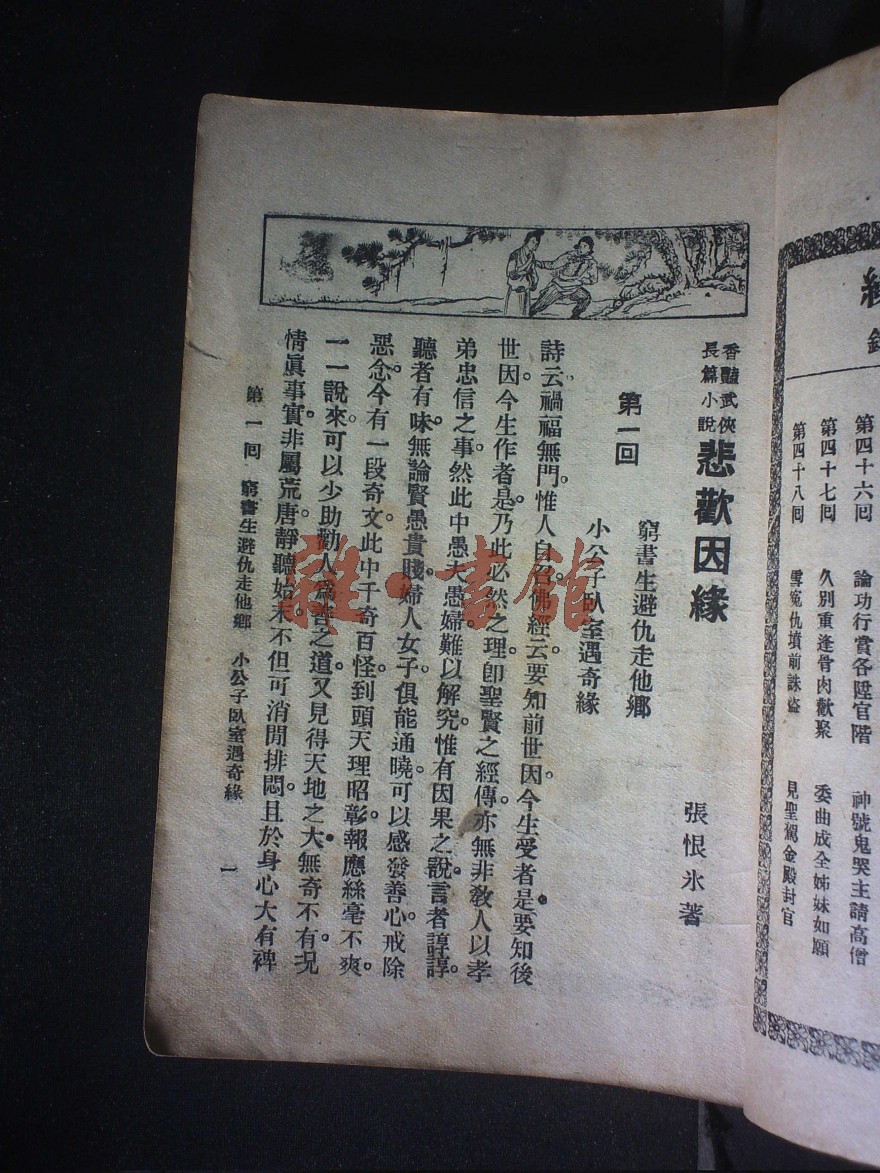 緣
錄
第四十六回 論功行賞各陞官階 神號鬼哭主請高僧
第四十七回 久別重逢骨肉歡聚 委曲成全姊妹如願
第四十八回 雪冤仇墳前誅盜 見聖駕金殿封官
香豔武俠
長篇小說
悲歡因緣
張恨氷著
第一回
窮書生避仇走他鄉
小公子臥室遇奇緣
詩云禍福無門。惟人自召。佛經云要知前世因。今生受者是。要知後
世因。今生作者是。乃此必然之理。卽聖賢之經傳。亦無非敎人以孝
弟忠信之事。然此中愚夫愚婦。難以解究。惟有因果之說。言者諄諄。
聽者有味。無論賢愚貴賤。婦人女子。俱能通曉。可以感發善心。戒除
惡念。今有一段奇文。此中千奇百怪。到頭天理昭彰。報應絲毫不爽。
一一說來。可以少助勸人爲善之道。又見得天地之大。無奇不有。况
情眞事實。非屬荒唐。靜聽始末。不但可消閒排悶。且於身心大有裨
第一回 窮書生避仇走他鄉 小公子臥室遇奇緣 一
雜·書館